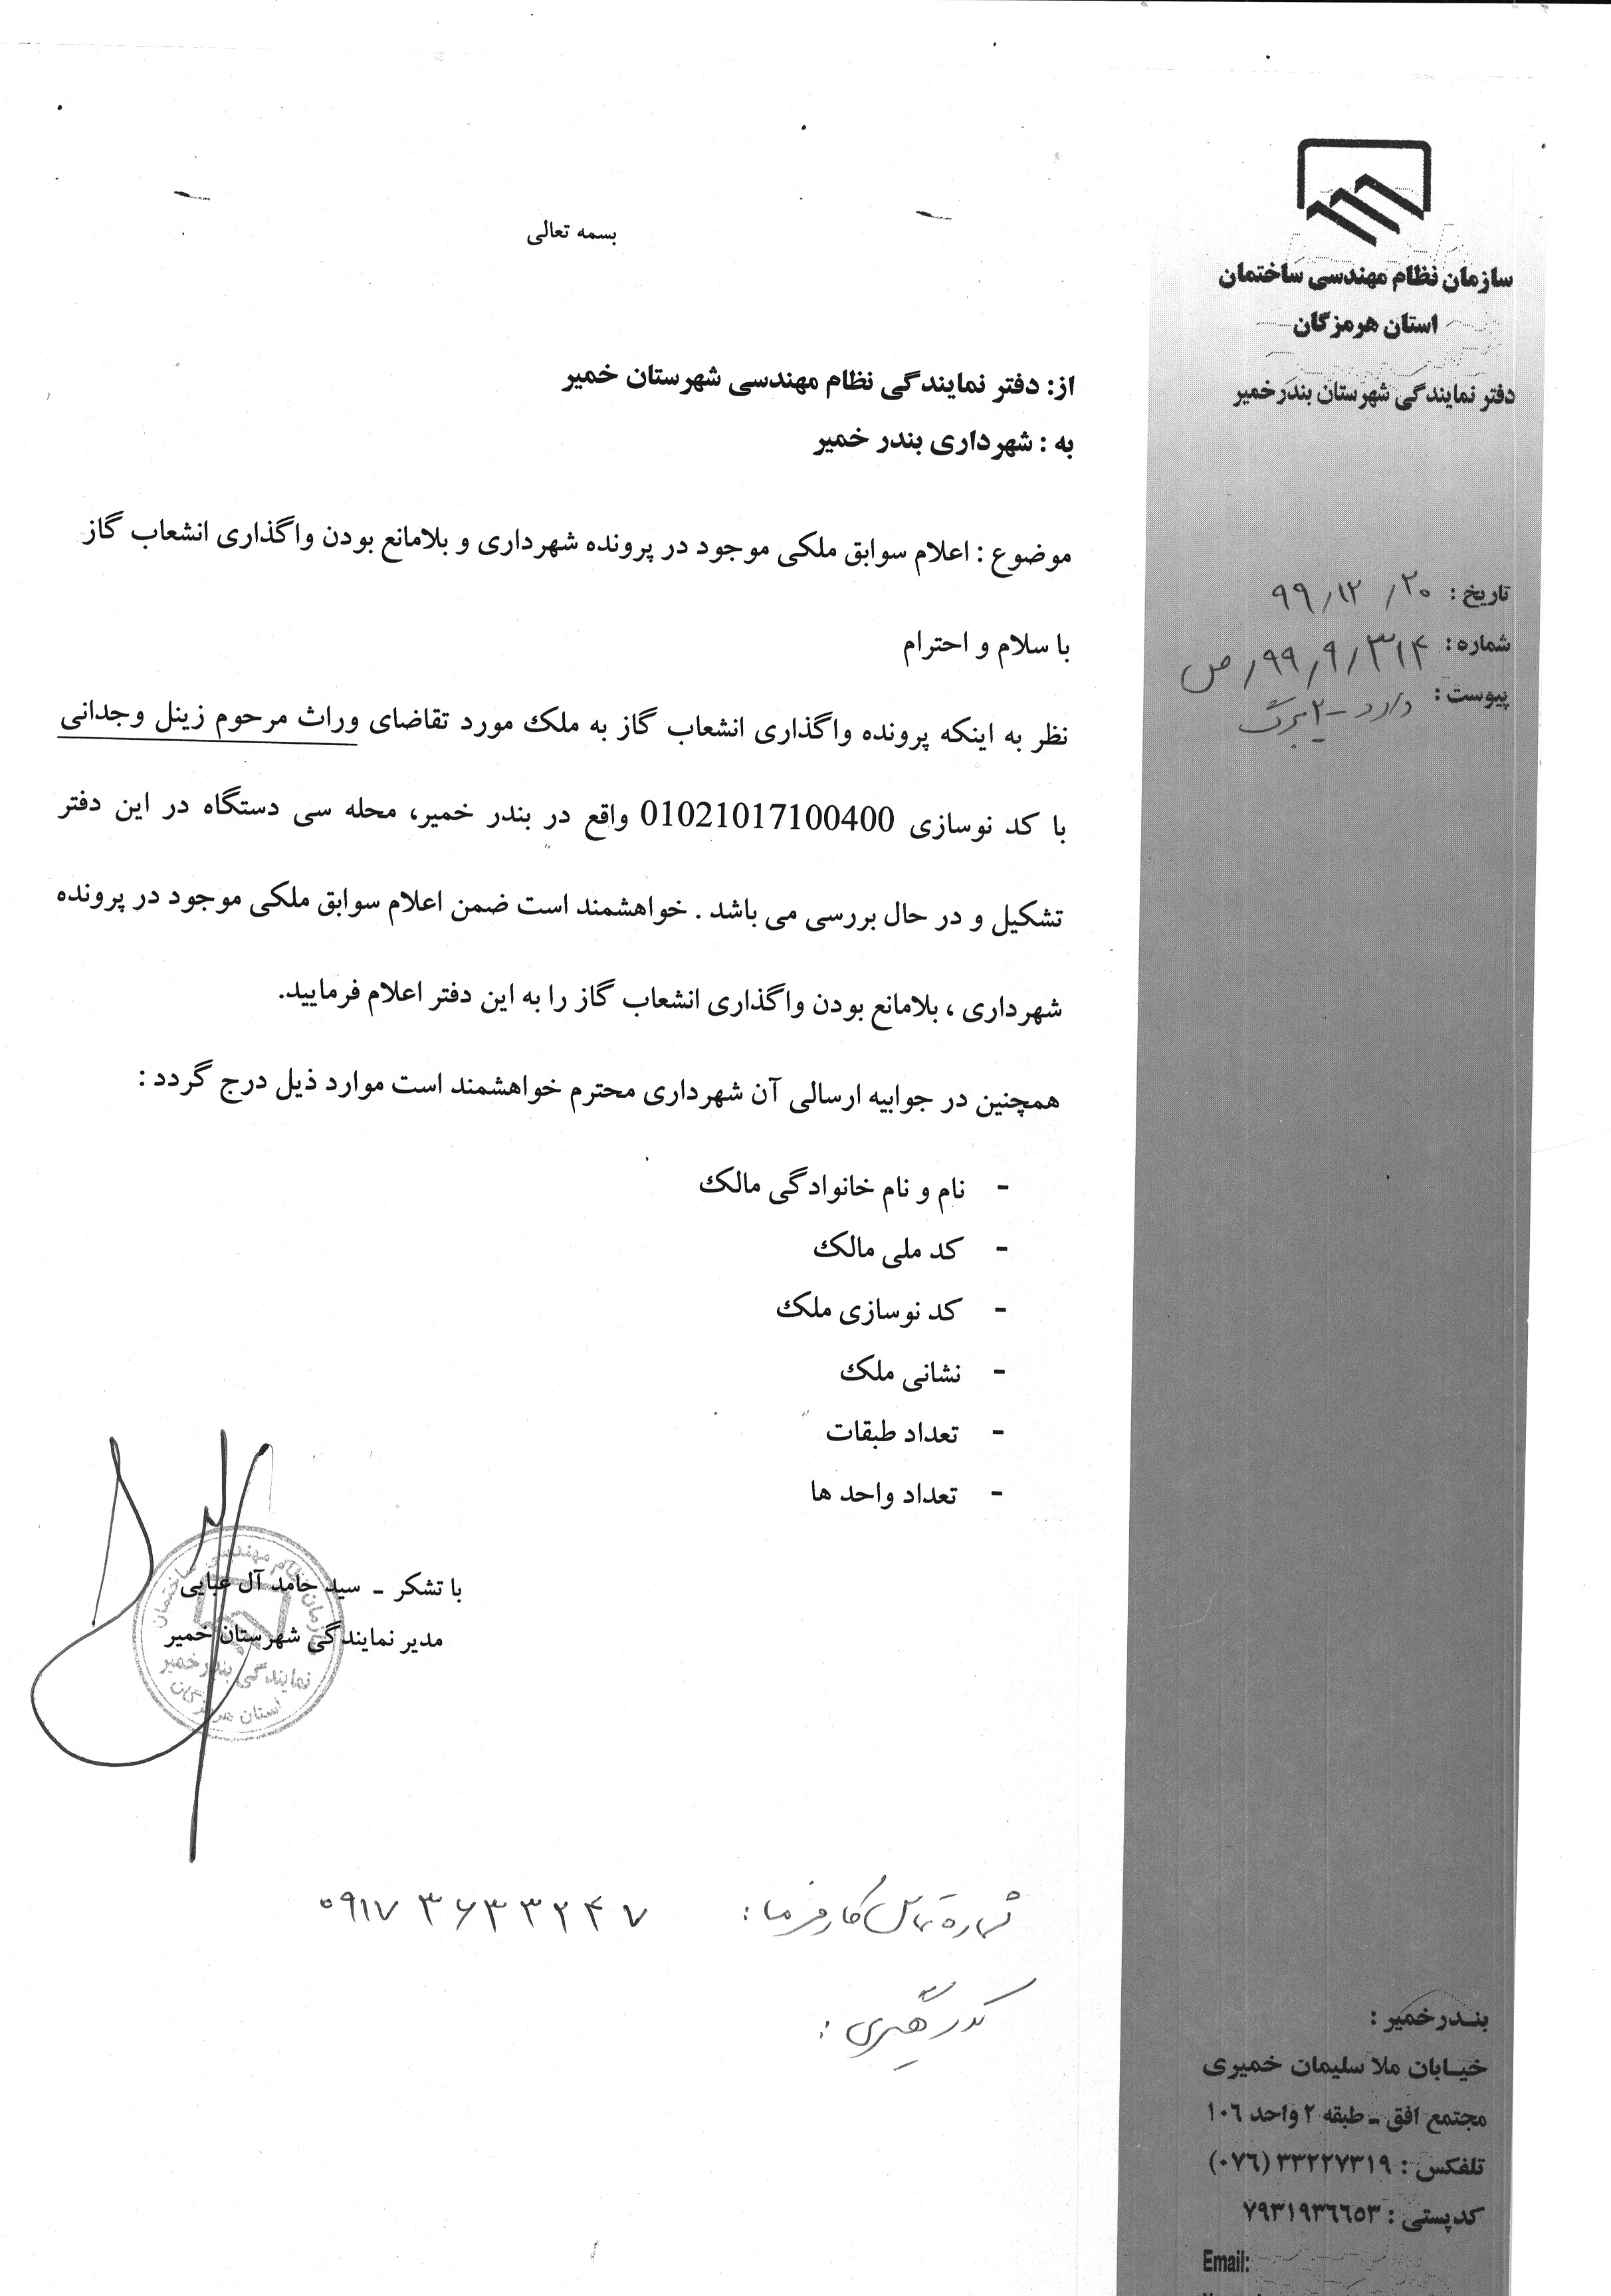 سازمان نظام مهندسی ساختمان
استان هرمزگان
دفتر نمایندگی شهرستان بندرخمیر
تاریخ : ۹۹/۱۲/۲۰
شماره : ۳۱۴/۹/۹۹/ص
پیوست : دارد - ۲ برگ
بسمه تعالی
از: دفتر نمایندگی نظام مهندسی شهرستان خمیر
به : شهرداری بندر خمیر
موضوع : اعلام سوابق ملکی موجود در پرونده شهرداری و بلامانع بودن واگذاری انشعاب گاز
با سلام و احترام
نظر به اینکه پرونده واگذاری انشعاب گاز به ملک مورد تقاضای وراث مرحوم زینل وجدانی
با کد نوسازی 01021017100400 واقع در بندر خمیر، محله سی دستگاه در این دفتر
تشکیل و در حال بررسی می باشد . خواهشمند است ضمن اعلام سوابق ملکی موجود در پرونده
شهرداری ، بلامانع بودن واگذاری انشعاب گاز را به این دفتر اعلام فرمایید.
همچنین در جوابیه ارسالی آن شهرداری محترم خواهشمند است موارد ذیل درج گردد :
- نام و نام خانوادگی مالک
- کد ملی مالک
- کد نوسازی ملک
- نشانی ملک
- تعداد طبقات
- تعداد واحد ها
با تشکر - سید حامد آل عبایی
مدیر نمایندگی شهرستان خمیر
سازمان نظام مهندسی ساختمان
نمایندگی بندرخمیر
استان هرمزگان
شماره تماس کارفرما : ۰۹۱۷۳۶۳۳۲۴۷
کد رهگیری :
بندرخمیر :
خیابان ملا سلیمان خمیری
مجتمع افق - طبقه ۲ واحد ۱۰۶
تلفکس : ۳۳۲۲۷۳۱۹ (۰۷۶)
کدپستی : ۷۹۳۱۹۳۶۶۵۳
Email: